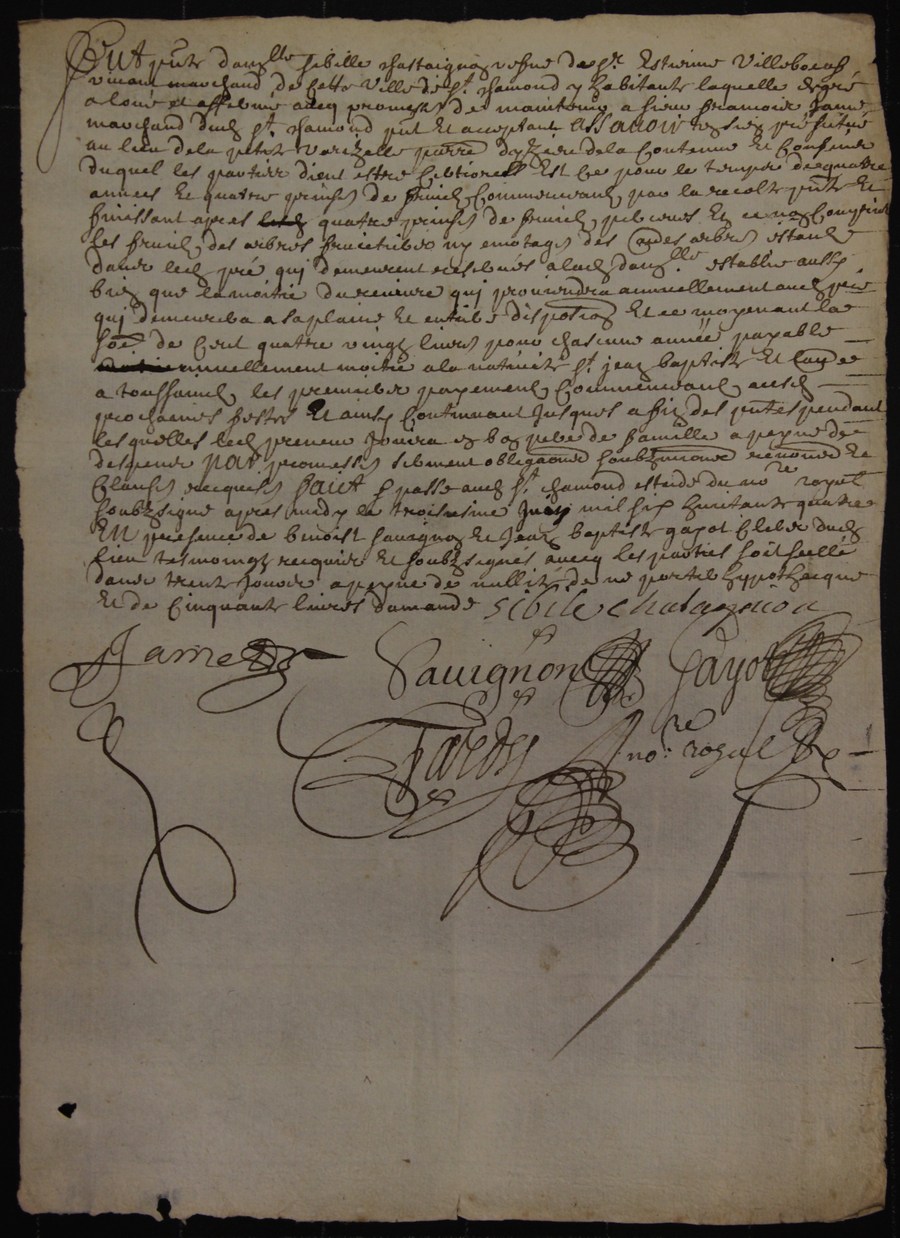 Fut pnte dam.lle sibille chastaignon vefve de s.r Estienne Villeboeuf
vivant marchand de cette Ville de s.t chamond y habitante laquelle de gré
a loué et affermé avec promesse de maintenir a sieur James
marchand dud s.t chamond pnt et acceptant Assavoir pré situé
au lieu de la petite de la Contenue et Confins
duquel les parties dient estre Et ce pour le temps de quatre
années et quatre prinses de fruicts Commencant par la recolte pnte et
finissant apres quatre prinses de fruicts et ce non Compris
les fruicts des arbres fruictiers ny emotages des arbres estant
dans led pré qui demeurent reservés a lad dam.lle establie aussy
bien que la moitié du qui proviendra annuellement aud pré
qui demeurera a sa plaine et entiere disposition Et ce moyenant la
de Cent quatre vingt livres pour chascune année payable
annuellement moitié a la nativité s.t jean baptiste et l'autre
a toussaincts les premiers payements Commencant ausd
prochaines festes Et ainsy Continuant jusques a fin des pntes pendant
lesquelles led preneur jouira en bon pere de famille a peyne de
despens par promesses serment obligations soubzmissions renonciations et
Clauses requises faict et passé aud s.t chamond estude du no.re royal
soubzsigné apres midy le troisiesme mil six huitante quatre
En presence de benoist sauvignon et Jean baptiste gayot Clercs dud
lieu tesmoings requis et soubzsignés avec les parties soit scellé
dans trente jours a peyne de nullité de ne porter hypothecque
Et de Cinquante livres damande sibile chatagnion
James
Sauvignon Gayot
Tardy no.re royal